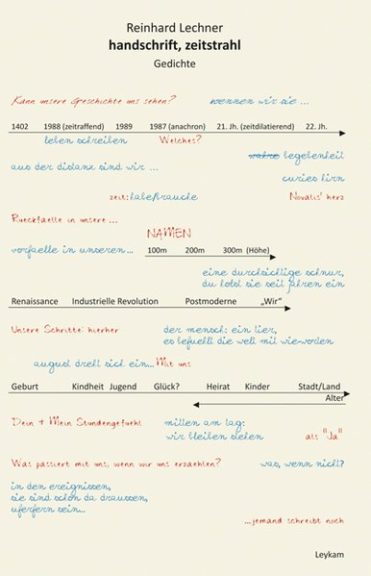 Reinhard Lechner
handschrift, zeitstrahl
Gedichte
Kann unsere Geschichte uns sehen? nennen wir sie ...
1402 1988 (zeitraffend) 1989 1987 (anachron) 21. Jh. (zeitdilatierend) 22. Jh.
leben schreiben Welches?
wahre begebenheit
aus der distanz sind wir ...
curies hirn
zeit: Novalis' herz
Rueckfaelle in unsere ...
NAMEN
vorfaelle in unseren... 100m 200m 300m (Höhe)
eine durchsichtige schnur,
du sie seit jahren ein
Renaissance Industrielle Revolution Postmoderne „Wir“
Unsere Schritte: hierher der mensch: ein tier,
es befuellt die welt mit wie-worten
august dreht sich ein... Mit uns
Geburt Kindheit Jugend Glück? Heirat Kinder Stadt/Land
Alter
Dein + Mein Stundengefuehl mitten am tag:
wir bleiben stehen als "Ja"
Was passiert mit uns, wenn wir uns erzaehlen? was, wenn nicht?
in den ereignissen,
sie sind schon da draussen,
uferfern sein...
...jemand schreibt noch
Leykam